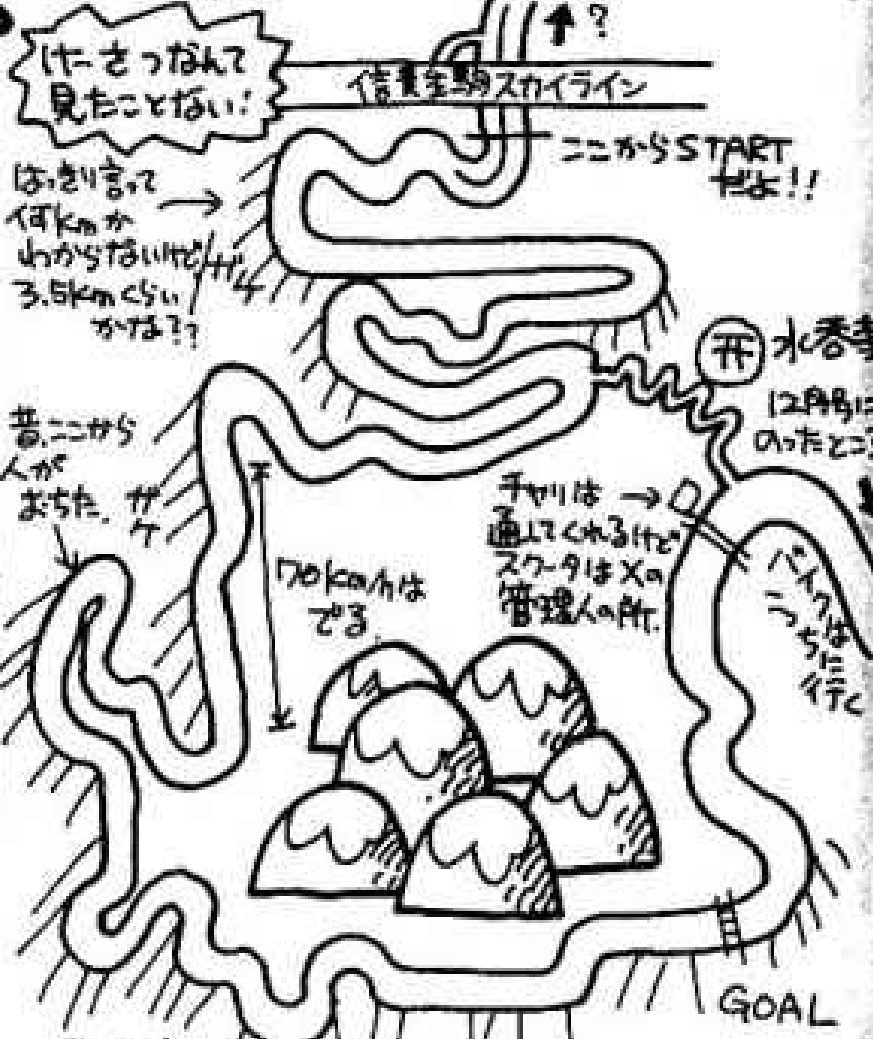 けーさつなんて
見たことない!
↑?
信貴生駒スカイライン
ここからSTART
だよ!!
はっきり言って
何kmか
わからないけど
3.5kmくらい
かな??
ガケ
水呑
12月号に
のったとこ
昔、ここから
人が
おちた。
ガケ
70km/hは
でる
チャリは
通してくれるけど
スクータはXの
管理人の所.
バイクは
こっちに
行く
GOAL